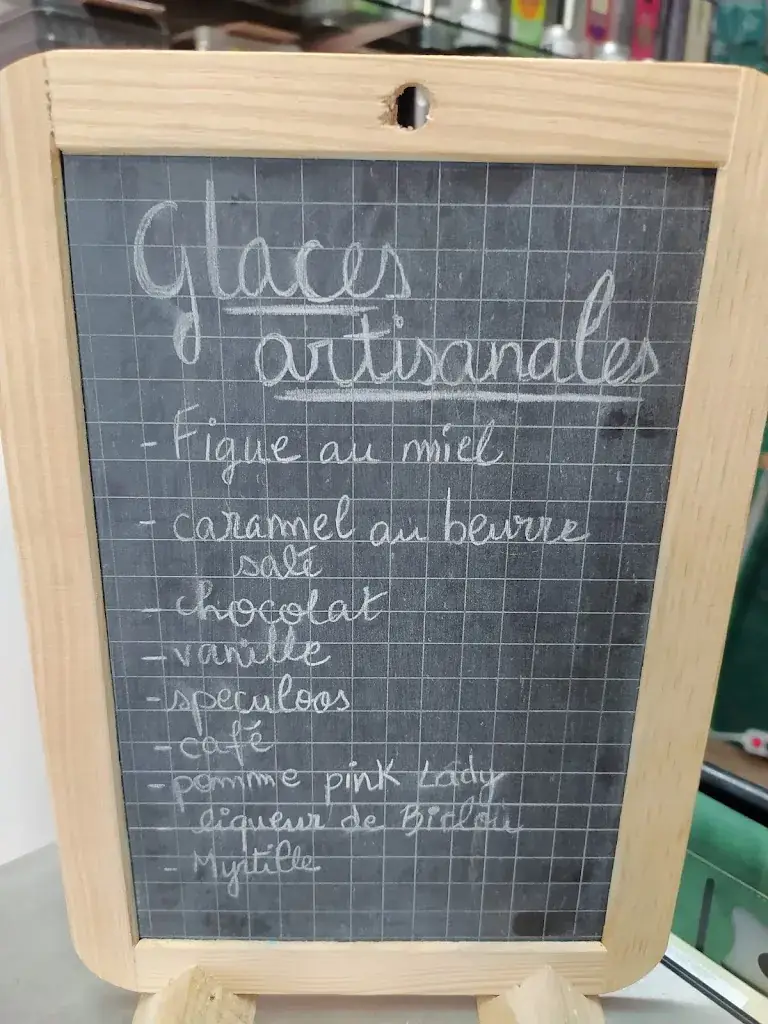 Glaces
artisanales
- Figue au miel
- caramel au beurre
salé
- chocolat
- vanille
- speculoos
- café
- pomme pink Lady
- liqueur de
- Myrtille